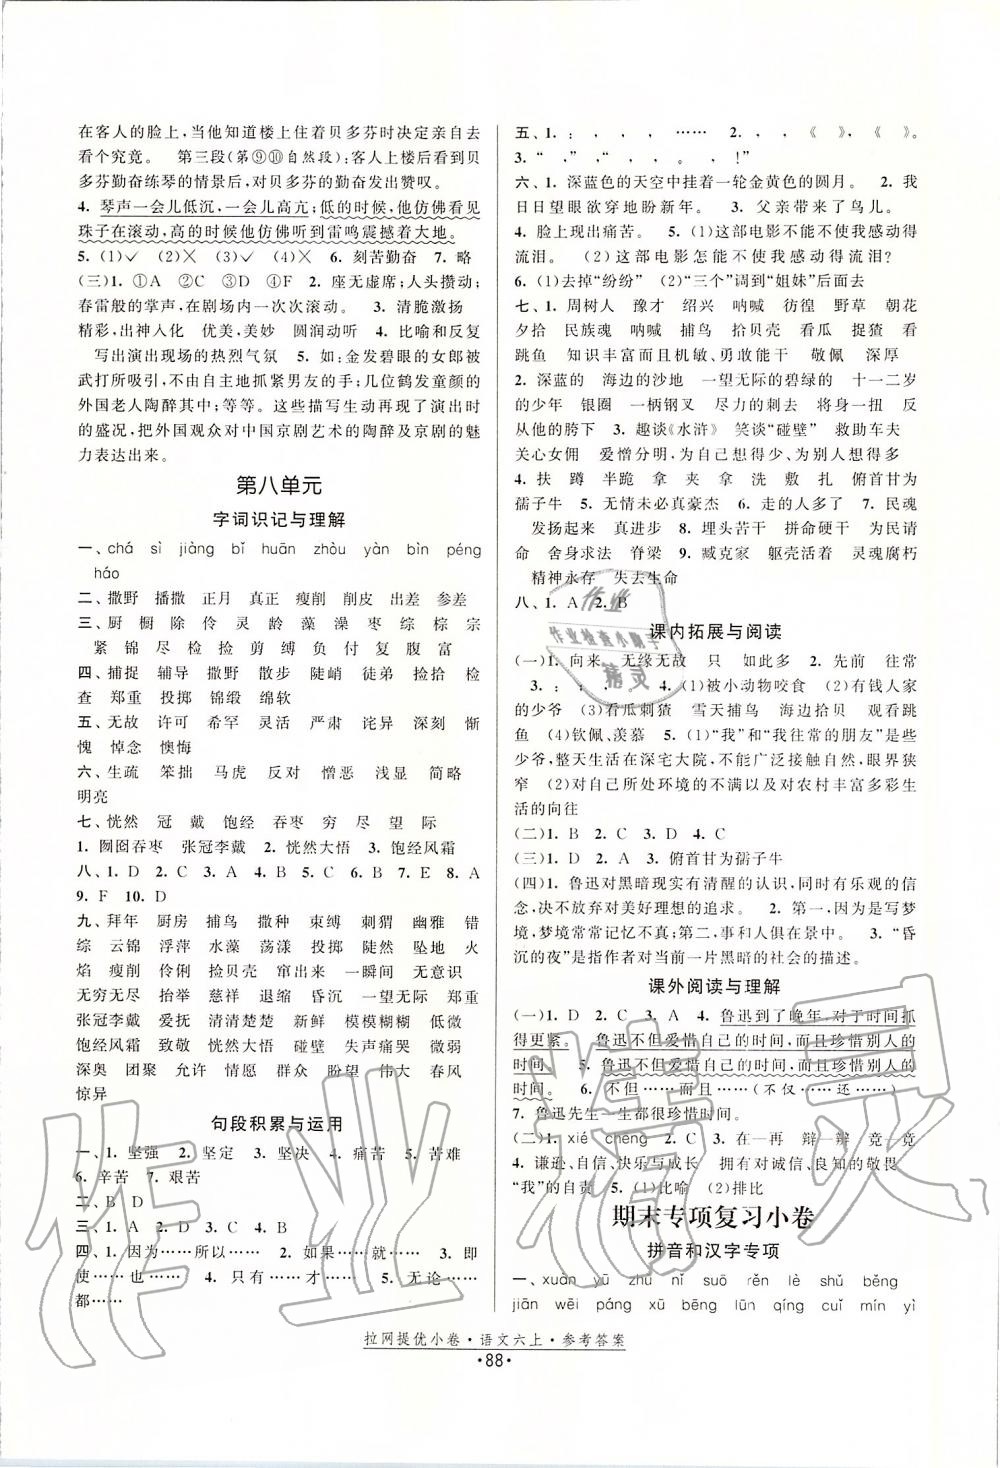 在客人的脸上,当他知道楼上住着贝多芬时决定亲自去
看个究竟。 第三段(第⑨⑩自然段):客人上楼后看到贝
多芬勤奋练琴的情景后,对贝多芬的勤奋发出赞叹。
4. 琴声一会儿低沉,一会儿高亢;低的时候,他仿佛看见
珠子在滚动,高的时候他仿佛听到雷鸣震撼着大地。
5. (1)✓ (2)× (3)✓ (4)× 6. 刻苦勤奋 7. 略
(三)1. ①A ②C ③D ④F 2. 座无虚席;人头攒动;
春雷般的掌声,在剧场内一次次滚动。 3. 清脆激扬
精彩,出神入化 优美,美妙 圆润动听 4. 比喻和反复
写出演出现场的热烈气氛 5. 如:金发碧眼的女郎被
武打所吸引,不由自主地抓紧男友的手;几位鹤发童颜的
外国老人陶醉其中;等等。这些描写生动再现了演出时
的盛况,把外国观众对中国京剧艺术的陶醉及京剧的魅
力表达出来。
第八单元
字词识记与理解
一、chá sì jiàng bǐ huān zhòu yàn bìn péng
háo
二、撒野 播撒 正月 真正 瘦削 削皮 出差 参差
三、厨 橱 除 伶 灵 龄 藻 澡 枣 综 棕 宗
紧 锦 尽 检 捡 剪 缚 负 付 复 腹 富
四、捕捉 辅导 撒野 散步 陡峭 徒弟 捡拾 检
查 郑重 投掷 锦缎 绵软
五、无故 许可 希罕 灵活 严肃 诧异 深刻 惭
愧 悼念 懊悔
六、生疏 笨拙 马虎 反对 憎恶 浅显 简略
明亮
七、恍然 冠 戴 饱经 吞枣 穷 尽 望 际
1. 囫囵吞枣 张冠李戴 2. 恍然大悟 3. 饱经风霜
八、1. D 2. C 3. A 4. C 5. A 6. B 7. E 8. A
9. F 10. D
九、拜年 厨房 捕鸟 撒种 束缚 刺猬 幽雅 错
综 云锦 浮萍 水藻 荡漾 投掷 陡然 坠地 火
焰 瘦削 伶俐 捡贝壳 窜出来 一瞬间 无意识
无穷无尽 抬举 慈祥 退缩 昏沉 一望无际 郑重
张冠李戴 爱抚 清清楚楚 新鲜 模模糊糊 低微
饱经风霜 致敬 恍然大悟 碰壁 失声痛哭 微弱
深奥 团聚 允许 情愿 群众 盼望 伟大 春风
惊异
句段积累与运用
一、1. 坚强 2. 坚定 3. 坚决 4. 痛苦 5. 苦难
6. 辛苦 7. 艰苦
二、B D
三、1. A 2. D 3. C 4. B
四、1. 因为……所以…… 2. 如果……就…… 3. 即
使……也…… 4. 只有……才…… 5. 无论……
都……
五、1. : , , , …… 2. , , 《 》 , 《 》。
3. “ , ” , “ , 。 , !”
六、1. 深蓝色的天空中挂着一轮金黄色的圆月。 2. 我
日日望眼欲穿地盼新年。 3. 父亲带来了鸟儿。
4. 脸上现出痛苦。 5. (1)这部电影不能不使我感动得
流泪。 (2)这部电影怎能不使我感动得流泪?
6. (1)去掉“纷纷” (2)“三个”调到“姐妹”后面去
七、1. 周树人 豫才 绍兴 呐喊 彷徨 野草 朝花
夕拾 民族魂 呐喊 捕鸟 拾贝壳 看瓜 捉猹 看
跳鱼 知识丰富而且机敏、勇敢能干 敬佩 深厚
2. 深蓝的 海边的沙地 一望无际的碧绿的 十一二岁
的少年 银圈 一柄钢叉 尽力的刺去 将身一扭 反
从他的胯下 3. 趣谈《水浒》 笑谈“碰壁” 救助车夫
关心女佣 爱憎分明 为自己想得少、为别人想得多
4. 扶 蹲 半跪 拿 夹 拿 洗 敷 扎 俯首甘为
孺子牛 5. 无情未必真豪杰 6. 走的人多了 7. 民魂
发扬起来 真进步 8. 埋头苦干 拼命硬干 为民请
命 舍身求法 脊梁 9. 臧克家 躯壳活着 灵魂腐朽
精神永存 失去生命
八、1. A 2. B
课内拓展与阅读
(一)1. 向来 无缘无故 只 如此多 2. 先前 往常
3. : ; ; , 。 4. (1)被小动物咬食 (2)有钱人家
的少爷 (3)看瓜刺猹 雪天捕鸟 海边拾贝 观看跳
鱼 (4)钦佩、羡慕 5. (1)“我”和“我往常的朋友”都是些
少爷,整天生活在深宅大院,不能广泛接触大自然,眼界狭
窄 (2)对自己所处环境的不满以及对农村丰富多彩生
活的向往
(二)1. B 2. C 3. D 4. C
(三)1. A 2. B 3. 俯首甘为孺子牛
(四)1. 鲁迅对黑暗现实有清醒的认识,同时有乐观的信
念,决不放弃对美好理想的追求。 2. 第一,因为写梦
境,梦境常常记忆不真;第二,事和人俱在景中。 3. “昏
沉的夜”是指作者对当前一片黑暗的社会的描述。
课外阅读与理解
(一)1. D 2. C 3. A 4. 鲁迅到了晚年,对于时间抓
得更紧。 鲁迅不但爱惜自己的时间,而且珍惜别人的
时间。 5. 鲁迅不但爱惜自己的时间,而且珍惜别人的
时间。 6. 不但……而且…… (不仅……还……)
7. 鲁迅先生一生都很珍惜时间。
(二)1. xié chěng 2. C 3. 在—再 辩—辨 竞—竟
4. 谦逊、自信、快乐与成长 拥有对美诚信、良知的敬畏
“我”的自责 5. (1)比喻 (2)排比
期末专项复习小卷
拼音和汉字专项
一、xuàn yǔ zhú nǐ suō rěn lè shǔ běng
jiān wēi páng xū bēng lūn qíng cuī mín yì
拉网提优小卷·语文六上·参考答案
·88·